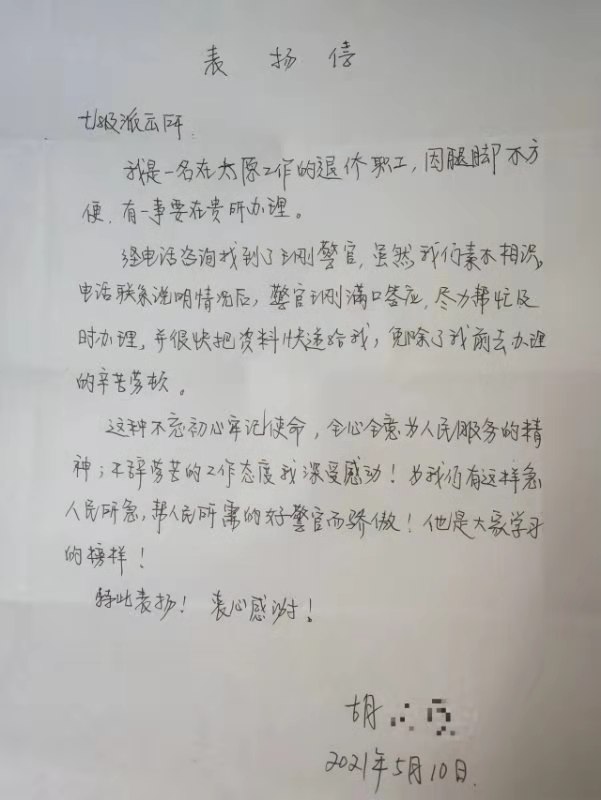 表扬信
七级派出所
我是一名在太原工作的退休职工，因腿脚不方
便，有一事要在贵所办理。
经电话咨询找到了王刚警官，虽然我们素不相识，
电话联系说明情况后，警官王刚满口答应，尽力帮忙及
时办理，并很快把资料快递给我，免除了我前去办理
的辛苦劳顿。
这种不忘初心牢记使命，全心全意为人民服务的精
神；不辞劳苦的工作态度我深受感动！为我们有这样急
人民所急，帮人民所需的好警官而骄傲！他是大家学习
的榜样！
特此表扬！衷心感谢！
胡
2021年5月10日.